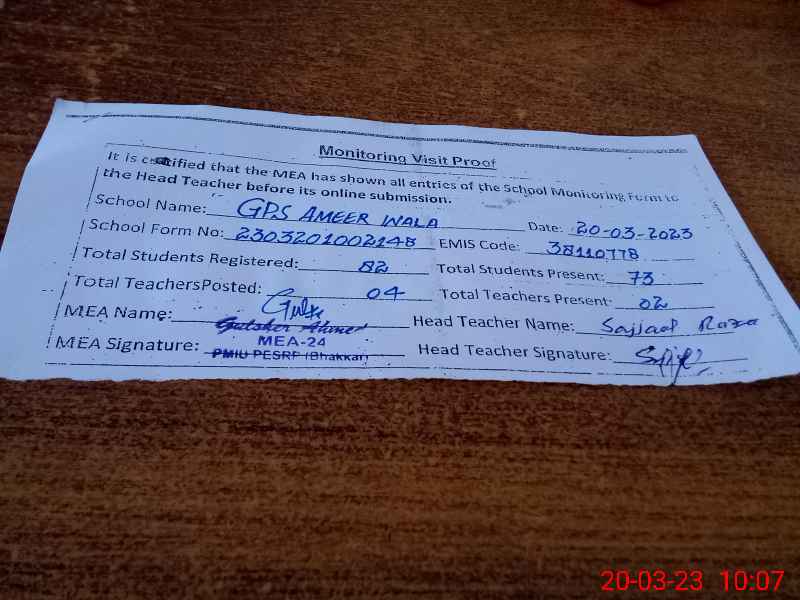 Monitoring Visit Proof
It is certified that the MEA has shown all entries of the School Monitoring Form to
the Head Teacher before its online submission.
School Name: GPS AMEER WALA Date: 20-03-2023
School Form No: 2303201002148 EMIS Code: 38110778
Total Students Registered: 82 Total Students Present: 73
Total TeachersPosted: 04 Total Teachers Present: 02
MEA Name: Head Teacher Name: Sajjad Raza
MEA Signature: MEA-24 Head Teacher Signature:
PMIU PESRP (Bhakkar)
20-03-23 10:07